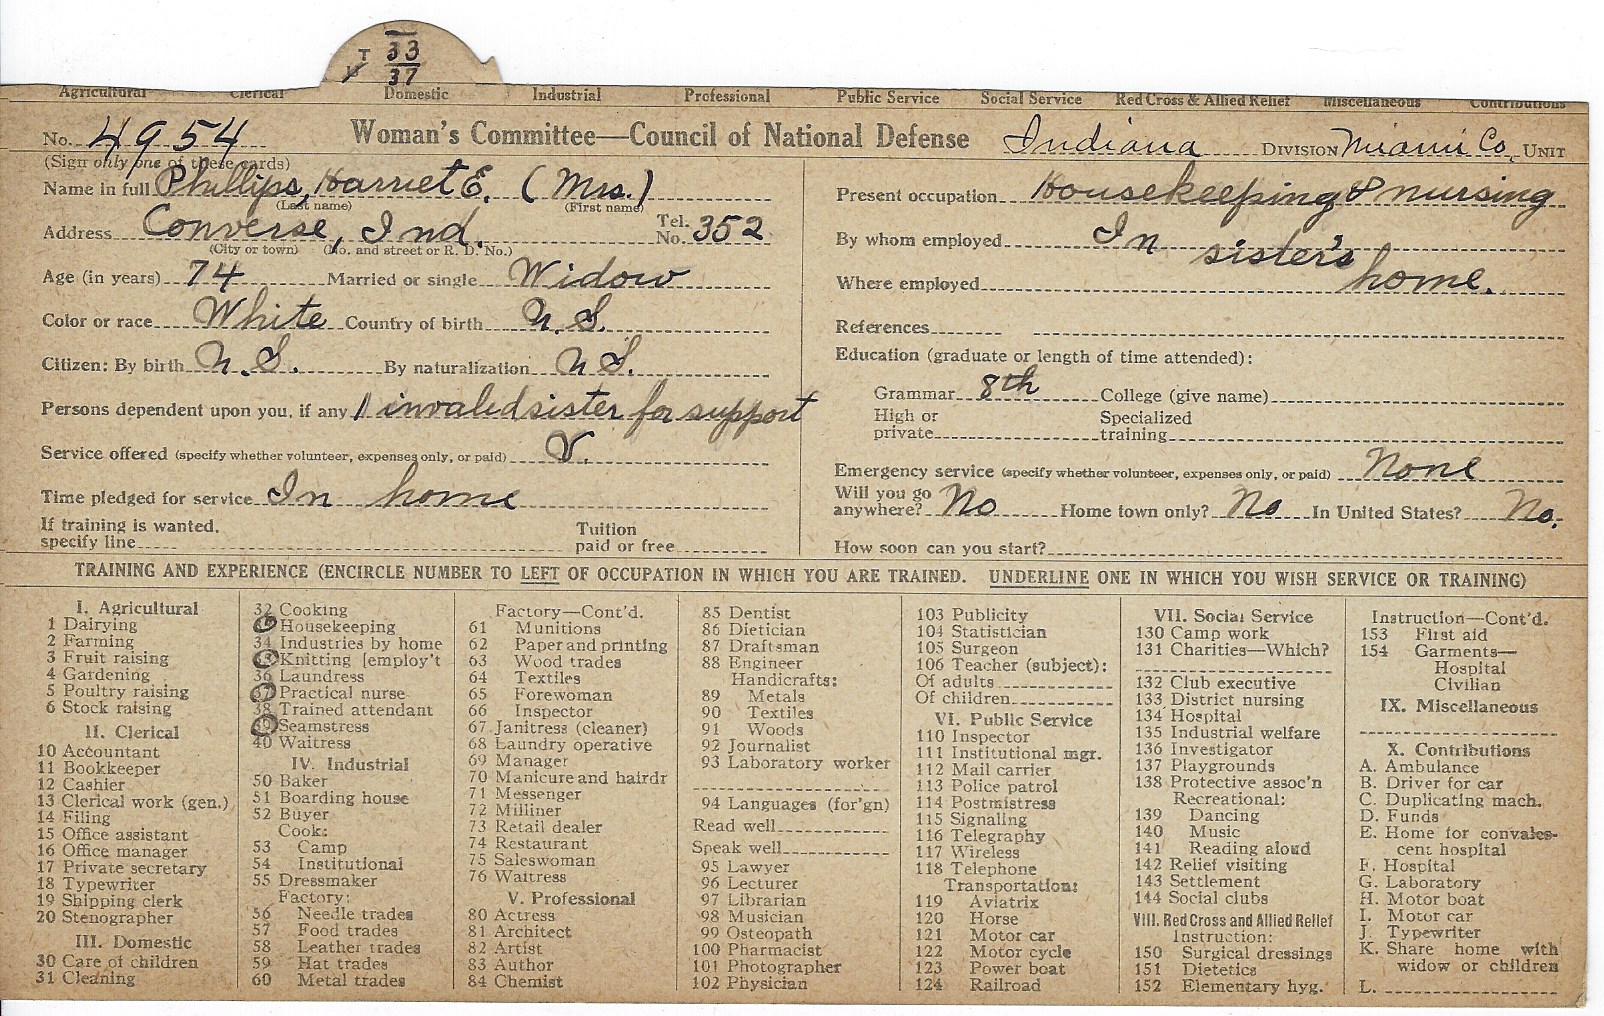 T 33
V 37
Agricultural Clerical Domestic Industrial Professional Public Service Social Service Red Cross & Allied Relief Miscellaneous Contributions
No. 4954 Woman's Committee—Council of National Defense Indiana DIVISION Miami Co. UNIT
(Sign only one of these cards)
Name in full Phillips, Harriet E. (Mrs.)
(Last name) (First name)
Address Converse, Ind. Tel. No. 352
(City or town) (No. and street or R. D. No.)
Age (in years) 74 Married or single Widow
Color or race White Country of birth U.S.
Citizen: By birth U.S. By naturalization U S.
Persons dependent upon you, if any 1 invalid sister for support
Service offered (specify whether volunteer, expenses only, or paid) V.
Time pledged for service In home
If training is wanted, specify line
Tuition paid or free
Present occupation Housekeeping & nursing
By whom employed In sister's
Where employed home.
References
Education (graduate or length of time attended):
Grammar 8th College (give name)
High or private Specialized training
Emergency service (specify whether volunteer, expenses only, or paid) None
Will you go anywhere? No Home town only? No In United States? No.
How soon can you start?
TRAINING AND EXPERIENCE (ENCIRCLE NUMBER TO LEFT OF OCCUPATION IN WHICH YOU ARE TRAINED. UNDERLINE ONE IN WHICH YOU WISH SERVICE OR TRAINING)
I. Agricultural
1 Dairying
2 Farming
3 Fruit raising
4 Gardening
5 Poultry raising
6 Stock raising
II. Clerical
10 Accountant
11 Bookkeeper
12 Cashier
13 Clerical work (gen.)
14 Filing
15 Office assistant
16 Office manager
17 Private secretary
18 Typewriter
19 Shipping clerk
20 Stenographer
III. Domestic
30 Care of children
31 Cleaning
32 Cooking
33 Housekeeping
34 Industries by home
35 Knitting [employ't
36 Laundress
37 Practical nurse
38 Trained attendant
39 Seamstress
40 Waitress
IV. Industrial
50 Baker
51 Boarding house
52 Buyer
Cook:
53 Camp
54 Institutional
55 Dressmaker
Factory:
56 Needle trades
57 Food trades
58 Leather trades
59 Hat trades
60 Metal trades
Factory—Cont'd.
61 Munitions
62 Paper and printing
63 Wood trades
64 Textiles
65 Forewoman
66 Inspector
67 Janitress (cleaner)
68 Laundry operative
69 Manager
70 Manicure and hairdr
71 Messenger
72 Milliner
73 Retail dealer
74 Restaurant
75 Saleswoman
76 Waitress
V. Professional
80 Actress
81 Architect
82 Artist
83 Author
84 Chemist
85 Dentist
86 Dietician
87 Draftsman
88 Engineer
Handicrafts:
89 Metals
90 Textiles
91 Woods
92 Journalist
93 Laboratory worker
94 Languages (for'gn)
Read well
Speak well
95 Lawyer
96 Lecturer
97 Librarian
98 Musician
99 Osteopath
100 Pharmacist
101 Photographer
102 Physician
103 Publicity
104 Statistician
105 Surgeon
106 Teacher (subject):
Of adults
Of children
VI. Public Service
110 Inspector
111 Institutional mgr.
112 Mail carrier
113 Police patrol
114 Postmistress
115 Signaling
116 Telegraphy
117 Wireless
118 Telephone
Transportation:
119 Aviatrix
120 Horse
121 Motor car
122 Motor cycle
123 Power boat
124 Railroad
VII. Social Service
130 Camp work
131 Charities—Which?
132 Club executive
133 District nursing
134 Hospital
135 Industrial welfare
136 Investigator
137 Playgrounds
138 Protective assoc'n
Recreational:
139 Dancing
140 Music
141 Reading aloud
142 Relief visiting
143 Settlement
144 Social clubs
VIII. Red Cross and Allied Relief
Instruction:
150 Surgical dressings
151 Dietetics
152 Elementary hyg.
Instruction—Cont'd.
153 First aid
154 Garments—
Hospital
Civilian
IX. Miscellaneous
X. Contributions
A. Ambulance
B. Driver for car
C. Duplicating mach.
D. Funds
E. Home for convales-
cent hospital
F. Hospital
G. Laboratory
H. Motor boat
I. Motor car
J. Typewriter
K. Share home with
widow or children
L.